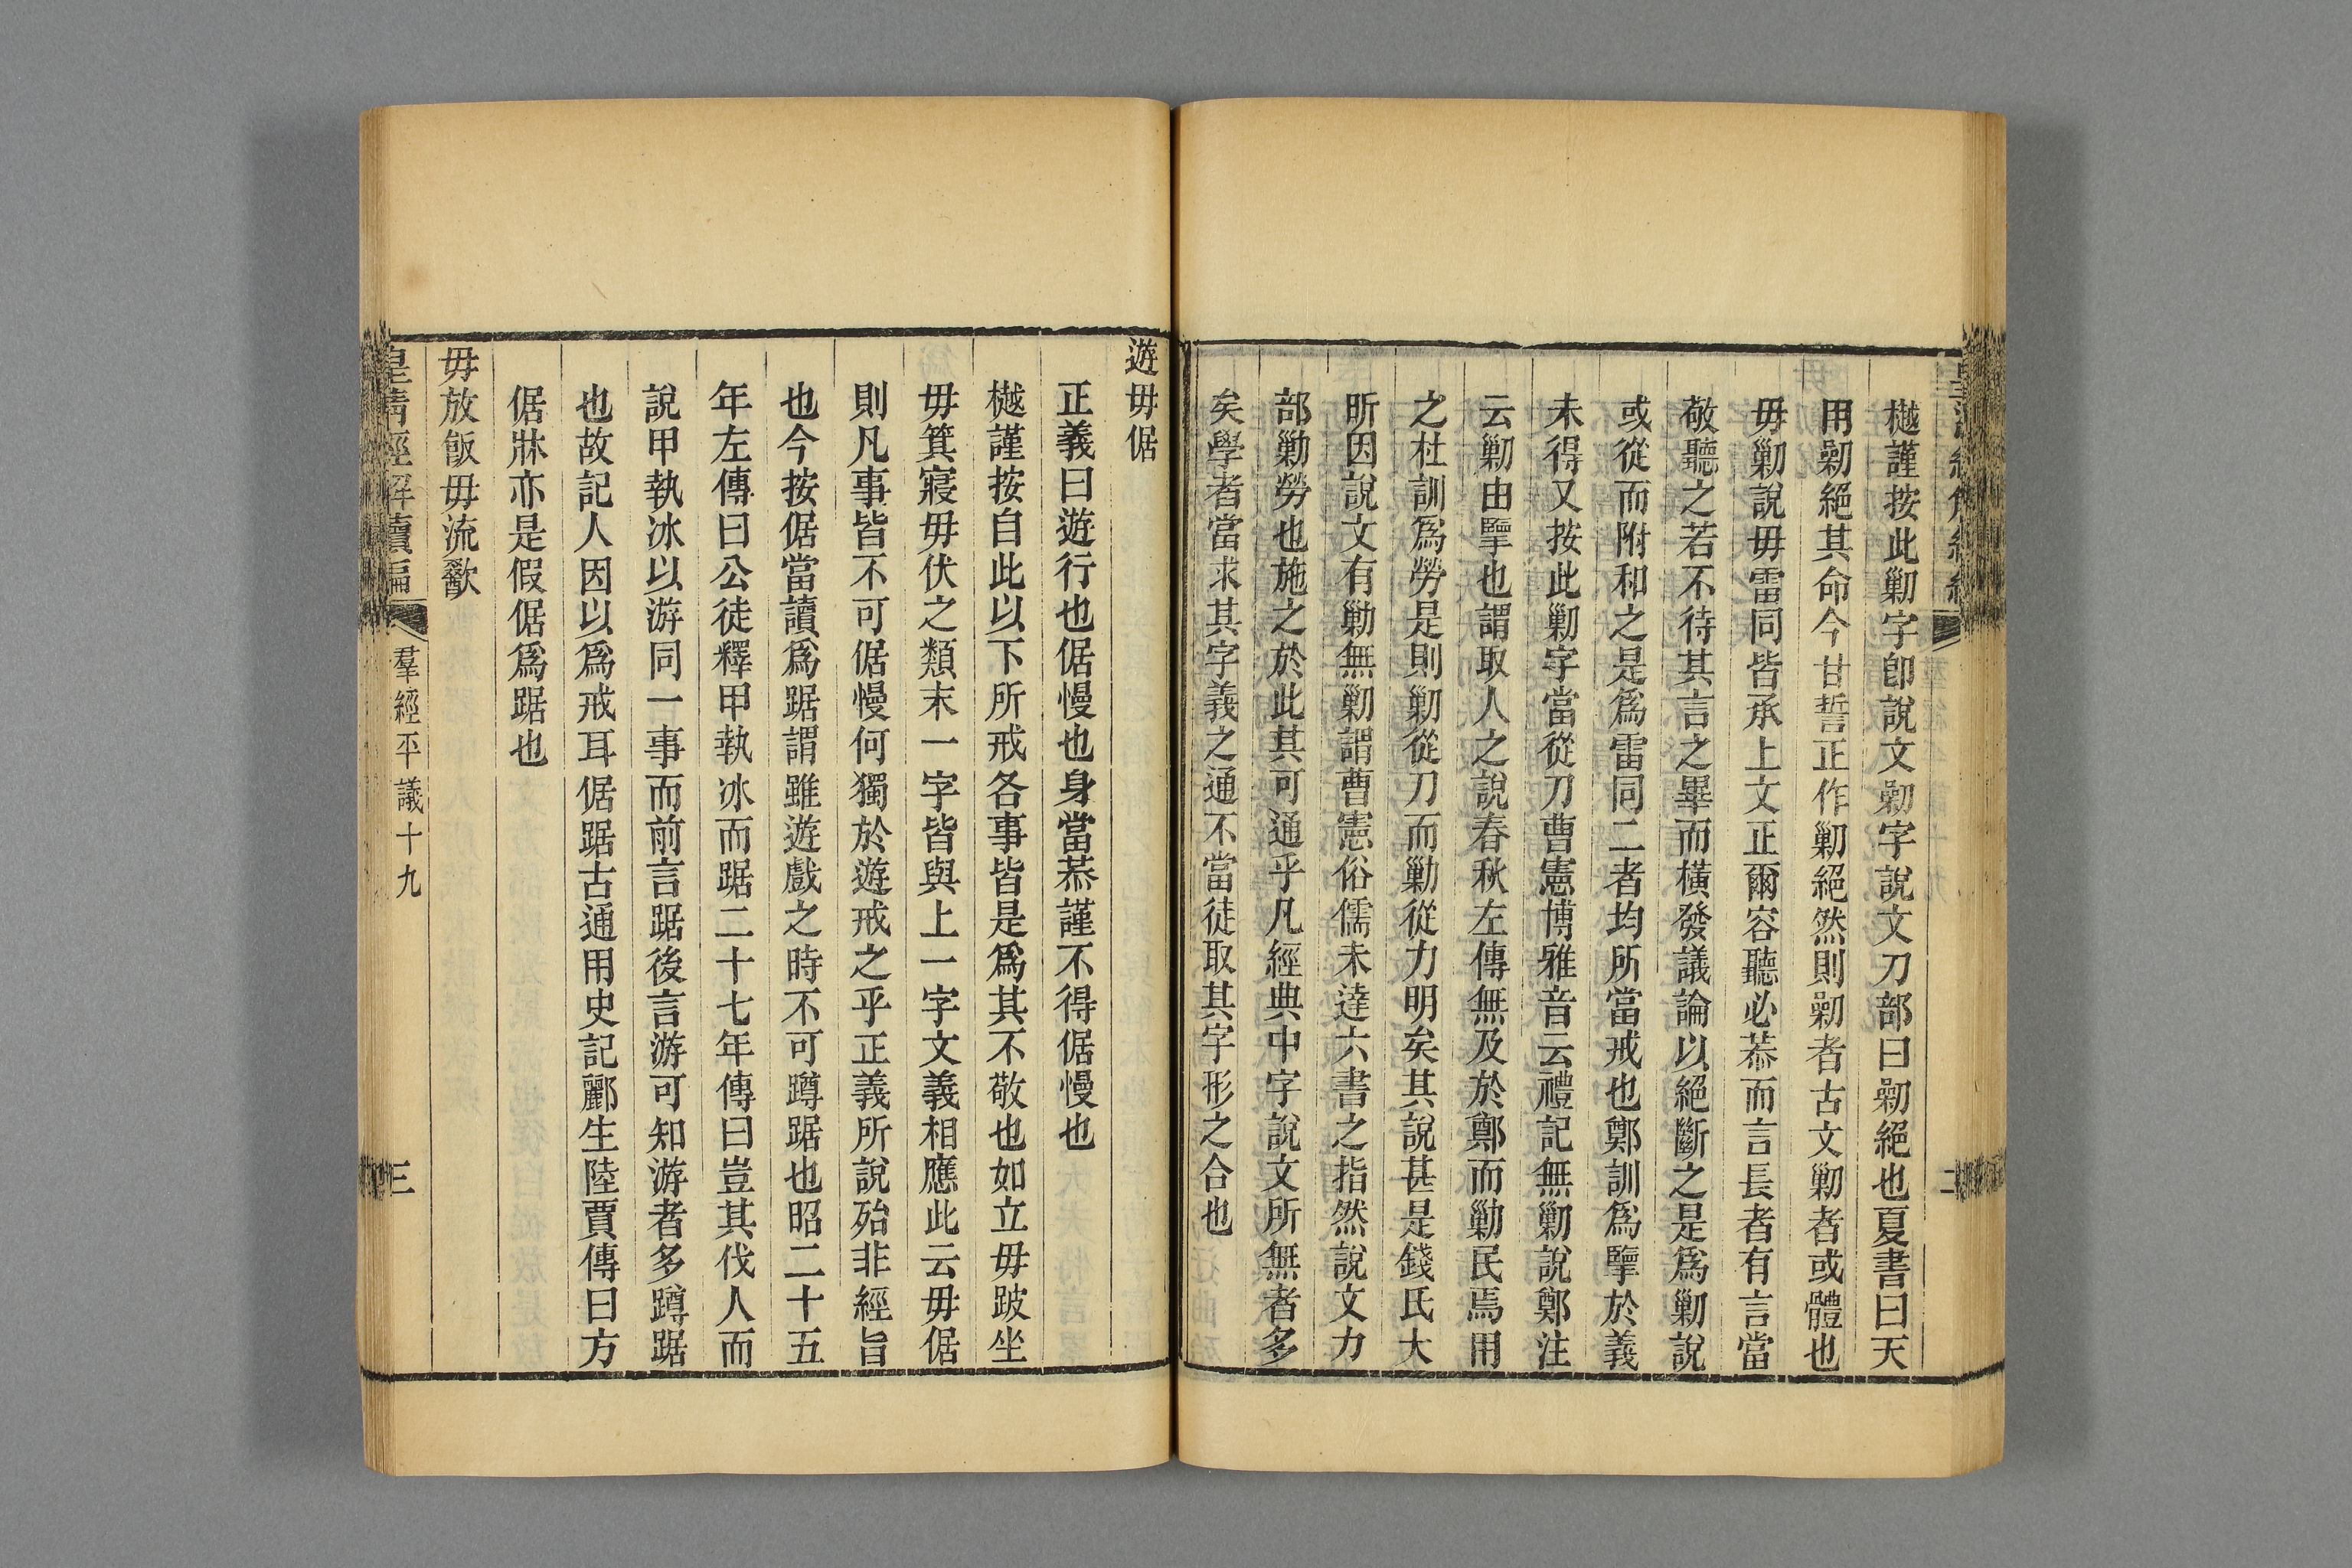 樾謹按此劋字卽說文劋字說文刀部曰劋絕也夏書曰天
用劋絕其命今甘誓正作勦絕然則劋者古文勦者或體也
毋勦說毋雷同皆承上文正爾容聽必恭而言長者有言當
敬聽之若不待其言之畢而橫發議論以絕斷之是爲勦說
或從而附和之是爲雷同二者均所當戒也鄭訓爲擥於義
未得又按此勦字當從刀曹憲博雅音云禮記無勦說鄭注
云勦由擥也謂取人之說春秋左傳無及於鄭而勦民焉用
之杜訓爲勞是則剿從刀而勦從力明矣其說甚是錢氏大
昕因說文有勦無剿謂曹憲俗儒未達六書之指然說文力
部勦勞也施之於此其可通乎凡經典中字說文所無者多
矣學者當求其字義之通不當徒取其字形之合也
遊毋倨
正義曰遊行也倨慢也身當恭謹不得倨慢也
樾謹按自此以下所戒各事皆是爲其不敬也如立毋跛坐
毋箕寢毋伏之類末一字皆與上一字文義相應此云毋倨
則凡事皆不可倨慢何獨於遊戒之乎正義所說殆非經旨
也今按倨當讀爲踞謂雖遊戲之時不可蹲踞也昭二十五
年左傳曰公徒釋甲執冰而踞二十七年傳曰豈其伐人而
說甲執冰以游同一事而前言踞後言游可知游者多蹲踞
也故記人因以爲戒耳倨踞古通用史記酈生陸賈傳曰方
倨牀亦是假倨爲踞也
毋放飯毋流歠
皇淸經解續編
羣經平議十九
三